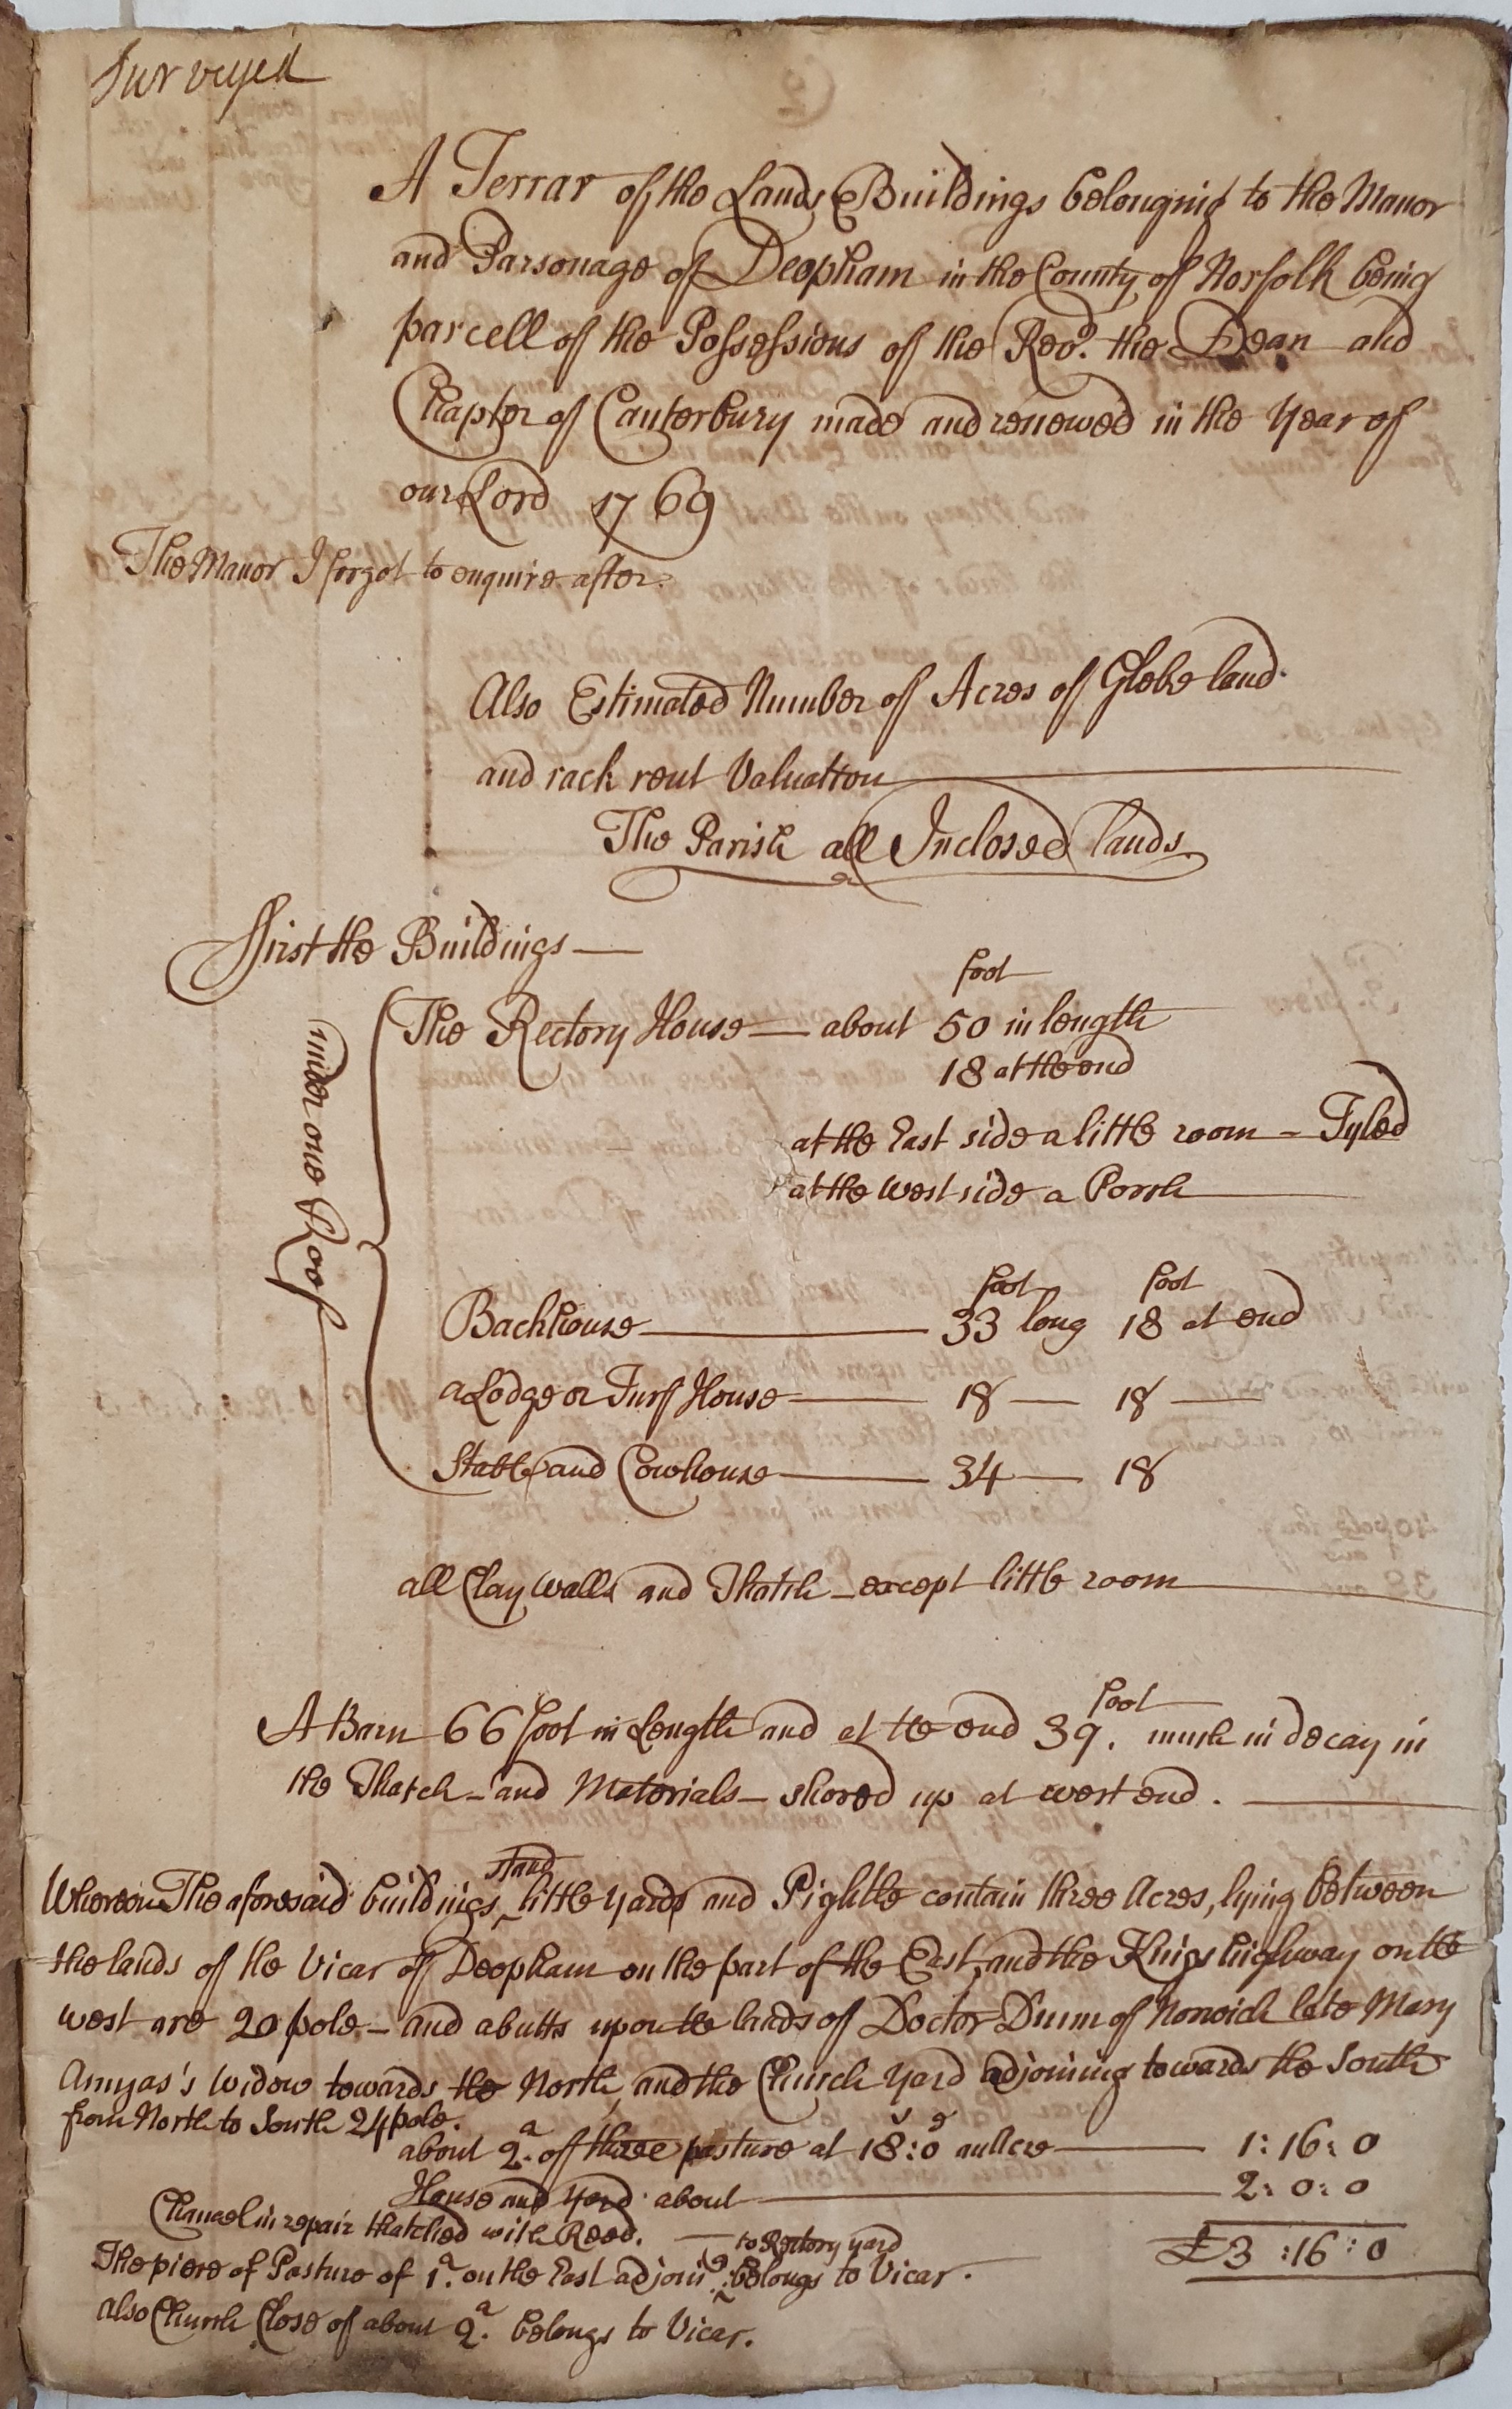 Surveyed
A Terrar of the Lands & Buildings belonging to the Manor
and Parsonage of Deopham in the County of Norfolk being
parcell of the Possessions of the Revd. the Dean and
Chapter of Canterbury made and renewed in the Year of
our Lord 1769
The Manor I forgot to enquire after.
Also Estimated Number of Acres of Glebe land
and rack rent Valuation
The Parish all Inclosed lands
ffirst the Buildings —
foot
The Rectory House — about 50 in length
18 at the end
at the East side a little room - Tyled
at the west side a Porch
under one Roof
foot foot
Backhouse — 33 long 18 at end
a Lodge or Turf House — 18 — 18 —
Stable and Cowhouse — 34 — 18
all Clay walls and Thatch - except little room
foot
A Barn 66 foot in Length and at the end 39. much in decay in
the Thatch - and Materials - shored up at west end.
stand
Whereon The aforesaid buildings ^ little yards and Pightle contain three Acres, lying between
the lands of the Vicar of Deopham on the part of the East, and the Kings highway on the
west are 20 pole - and abutts upon the lands of Doctor Dunn of Norwich late Mary
Amyas's Widow towards the North, and the Church Yard adjoining towards the South
from North to South 24 pole.
about 2.a of these pasture at 18s:0d an Acre — 1: 16: 0
House and Yard about — 2: 0: 0
Chancel in repair thatched with Reed. £3 :16 : 0
— to Rectory yard
The piece of Pasture of 1.a on the East adjoing ^ belongs to Vicar.
also Church Close of about 2.a belongs to Vicar.